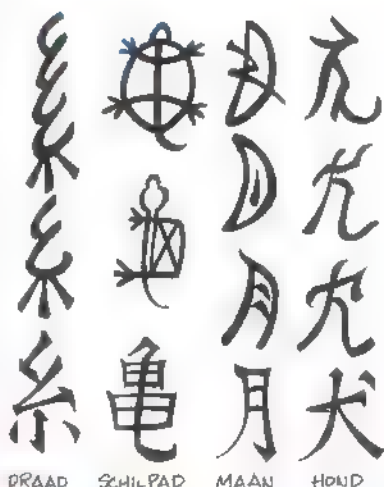 糸 亀 月 犬
DRAAD SCHILPAD MAAN HOND